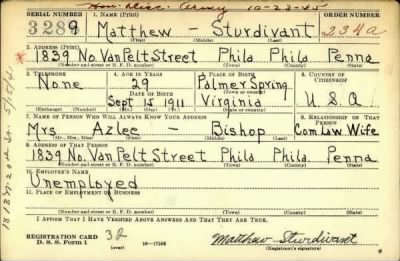 Hon. Disc. Army 10-23-45
SERIAL NUMBER 1. NAME (Print) ORDER NUMBER
3289 Matthew - Sturdivant 234a
(First) (Middle) (Last)
2. ADDRESS (Print)
1839 No. Van Pelt Street Phila Phila Penna
(Number and street or R. F. D. number) (Town) (County) (State)
3. TELEPHONE 4. AGE IN YEARS 5. PLACE OF BIRTH 6. COUNTRY OF CITIZENSHIP
None 29 Palmer Spring
DATE OF BIRTH (Town or county)
Sept 15 1911 Virginia U.S.A
(Exchange) (Number) (Mo.) (Day) (Yr.) (State or country)
7. NAME OF PERSON WHO WILL ALWAYS KNOW YOUR ADDRESS 8. RELATIONSHIP OF THAT PERSON
Mrs Azlee - Bishop Com Law Wife
(Mr., Mrs., Miss) (First) (Middle) (Last)
9. ADDRESS OF THAT PERSON
1839 No. Van Pelt Street Phila Phila. Penna
(Number and street or R. F. D. number) (Town) (County) (State)
10. EMPLOYER'S NAME
Unemployed
11. PLACE OF EMPLOYMENT OR BUSINESS
(Number and street or R. F. D. number) (Town) (County) (State)
I AFFIRM THAT I HAVE VERIFIED ABOVE ANSWERS AND THAT THEY ARE TRUE.
REGISTRATION CARD
D. S. S. Form 1 (over) 16-17105
Matthew Sturdivant
(Registrant's signature)